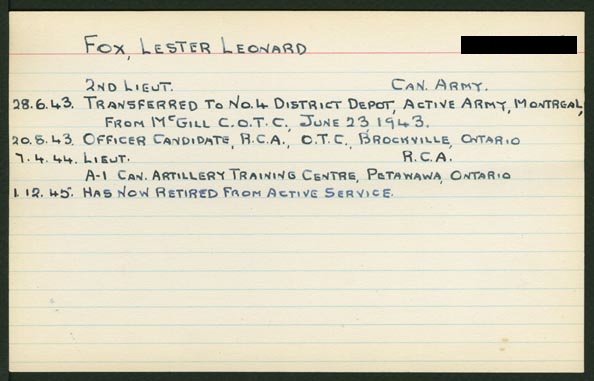 FOX, LESTER LEONARD
2ND LIEUT. CAN. ARMY.
28.6.43. TRANSFERRED TO NO.4 DISTRICT DEPOT, ACTIVE ARMY, MONTREAL,
FROM MCGILL C.O.T.C., JUNE 23 1943.
20.8.43. OFFICER CANDIDATE, R.C.A., O.T.C., BROCKVILLE, ONTARIO
7.4.44. LIEUT. R.C.A.
A-1 CAN. ARTILLERY TRAINING CENTRE, PETAWAWA, ONTARIO
1.12.45. HAS NOW RETIRED FROM ACTIVE SERVICE.